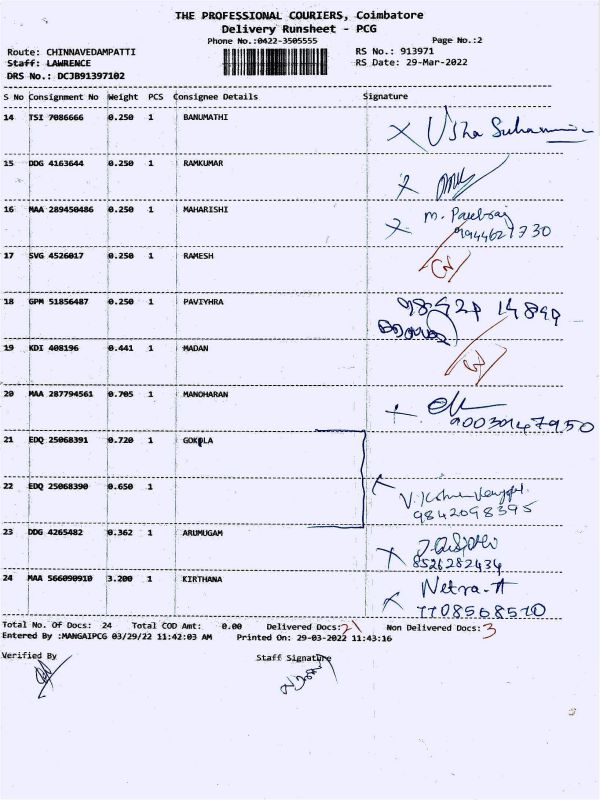 THE PROFESSIONAL COURIERS, Coimbatore
Delivery Runsheet - PCG
Phone No.:0422-3505555 Page No.:2
Route: CHINNAVEDAMPATTI RS No.: 913971
Staff: LAWRENCE RS Date: 29-Mar-2022
DRS No.: DCJB91397102
S No Consignment No Weight PCS Consignee Details Signature
14 TSI 7086666 0.250 1 BANUMATHI
15 DDG 4163644 0.250 1 RAMKUMAR
16 MAA 289450486 0.250 1 MAHARISHI
17 SVG 4526017 0.250 1 RAMESH
18 GPM 51856487 0.250 1 PAVIYHRA
19 KDI 408196 0.441 1 MADAN
20 MAA 287794561 0.705 1 MANOHARAN
21 EDQ 25068391 0.720 1 GOKOLA
22 EDQ 25068390 0.650 1
9842098395
23 DDG 4265482 0.362 1 ARUMUGAM
8526282434
24 MAA 566090910 3.200 1 KIRTHANA Netra.A
7708568510
Total No. Of Docs: 24 Total COD Amt: 0.00 Delivered Docs: 21 Non Delivered Docs: 3
Entered By :MANGAIPCG 03/29/22 11:42:03 AM Printed On: 29-03-2022 11:43:16
Verified By Staff Signature